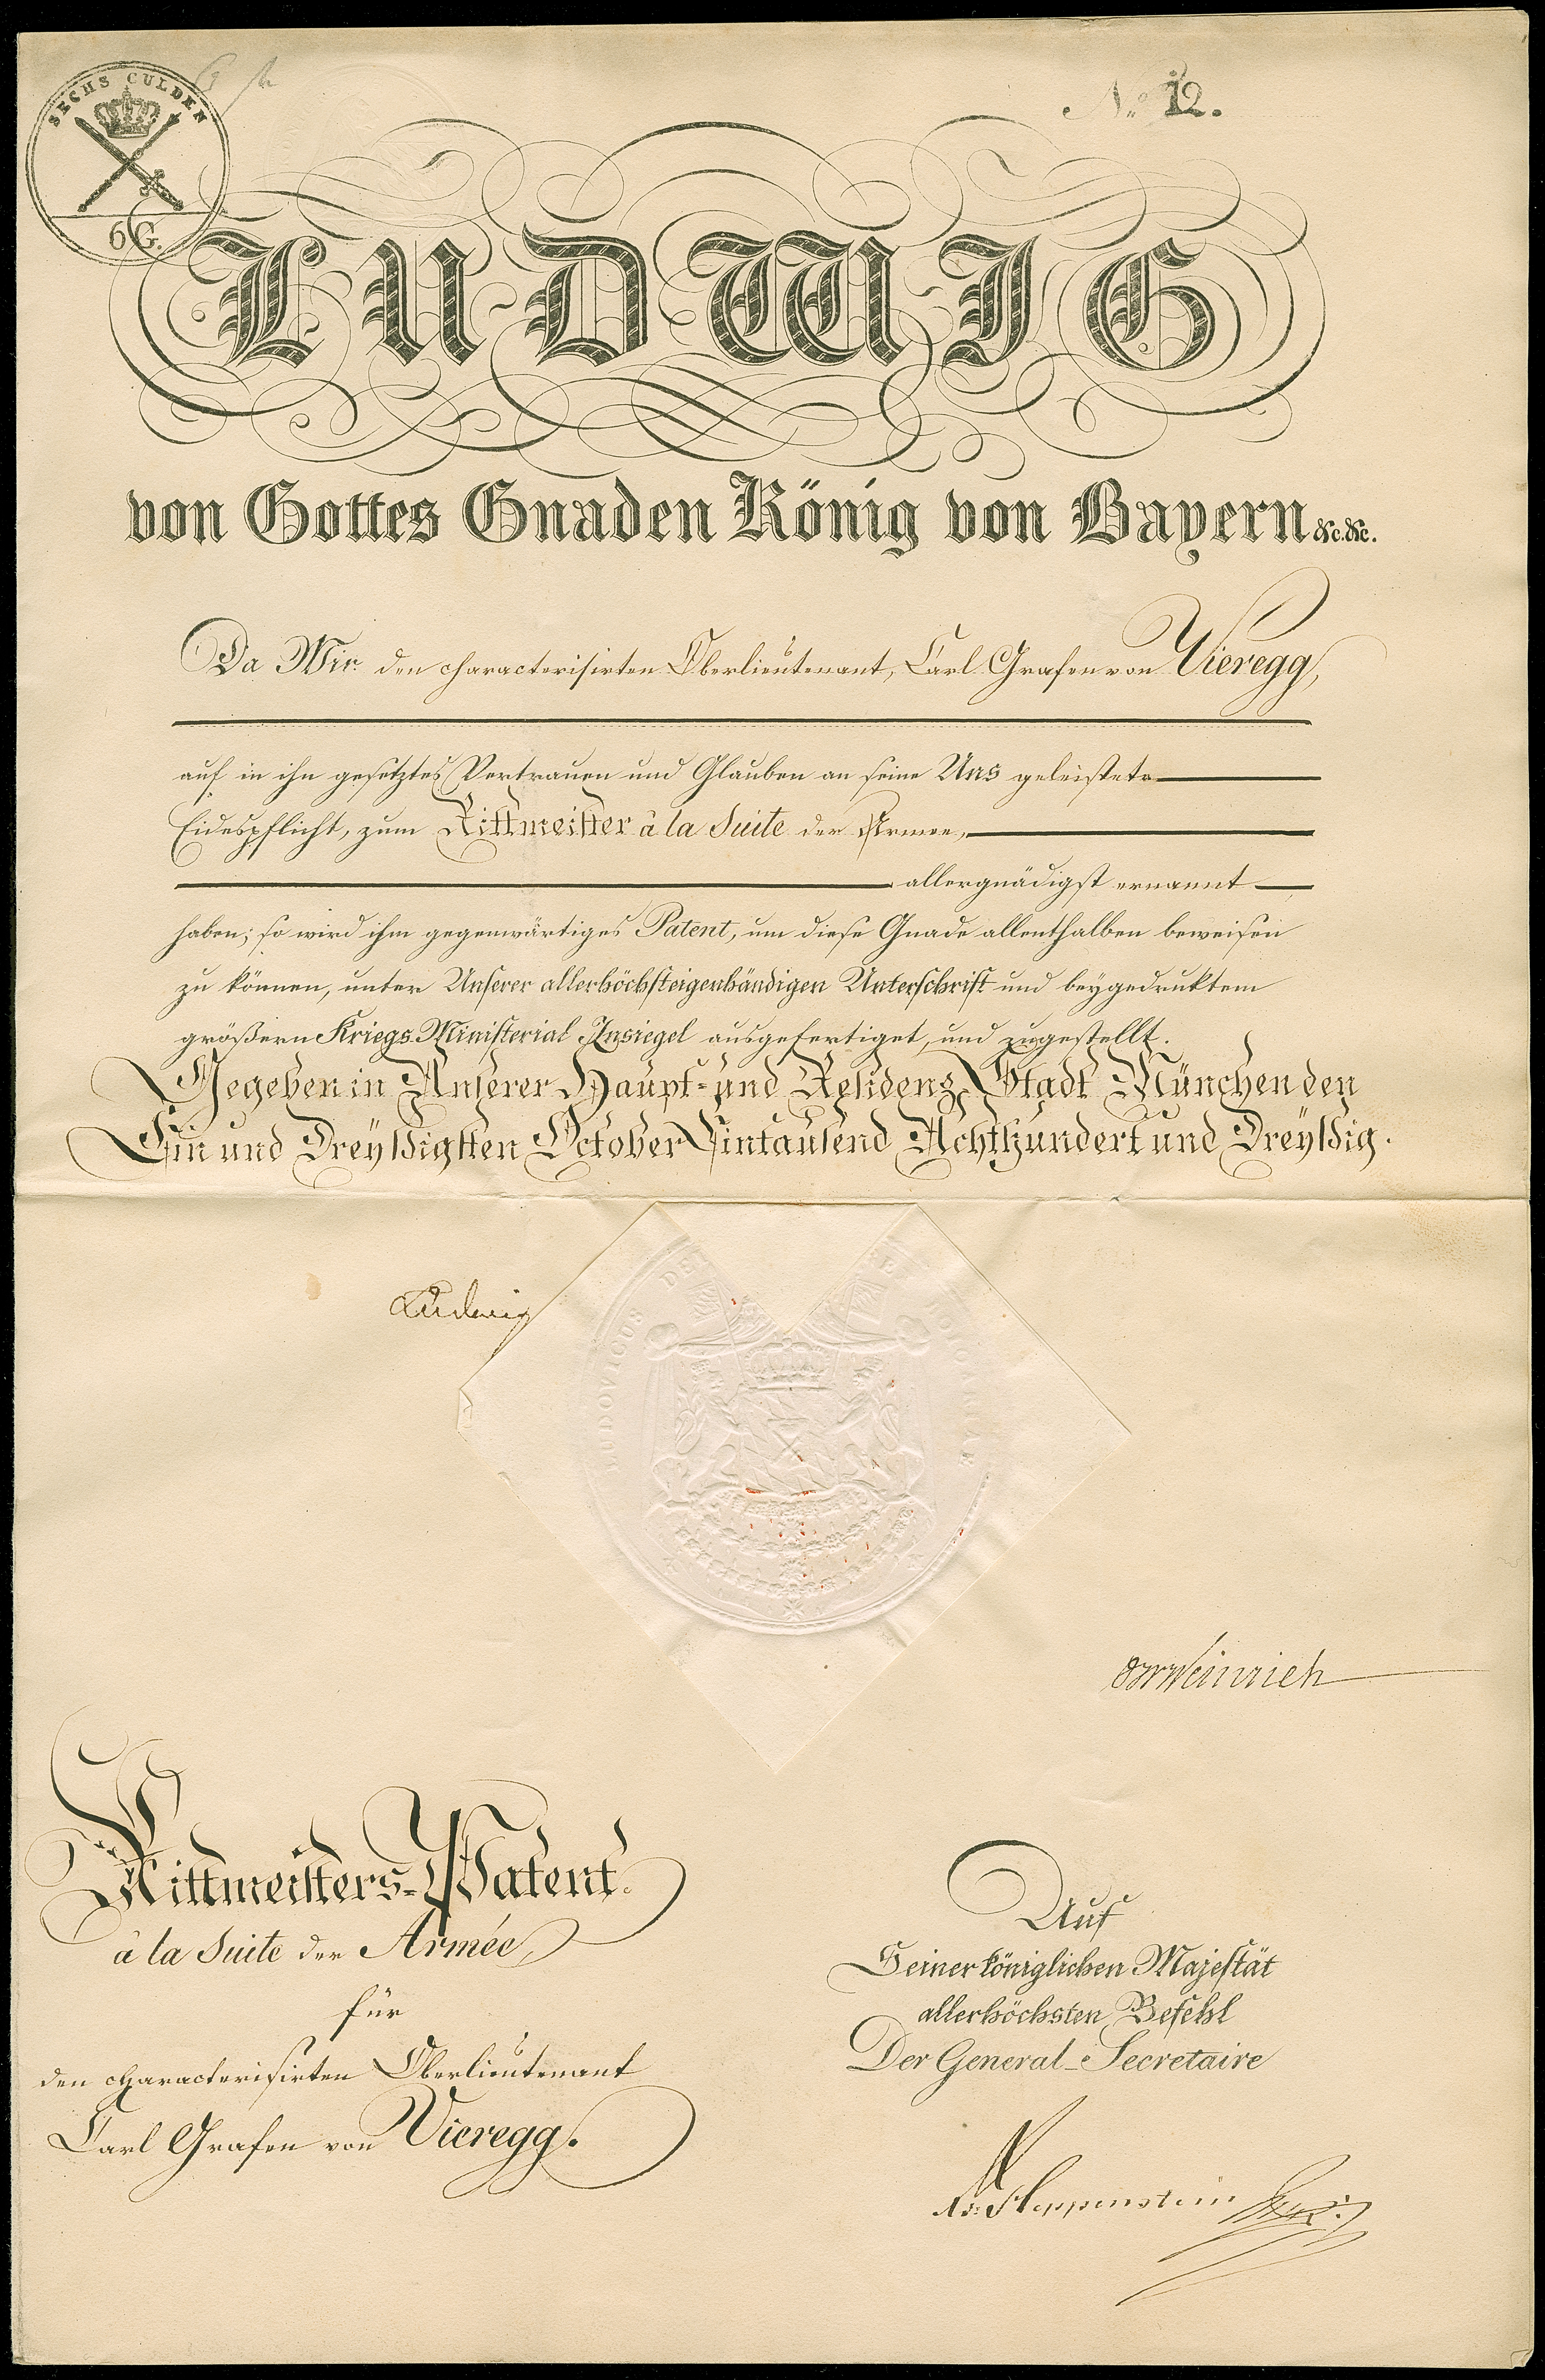 SECHS GULDEN
6 G.
No. 12.
LUDWIG
von Gottes Gnaden König von Bayern &c. &c.
Da Wir den characterisirten Oberlieutenant, Carl Grafen von Vieregg,
auf in ihn gesetztes Vertrauen und Glauben an seine Uns geleistete
Eidespflicht, zum Rittmeister à la Suite der Armee,
allergnädigst ernannt
haben; so wird ihm gegenwärtiges Patent, um diese Gnade allenthalben beweisen
zu können, unter Unserer allerhöchsteigenhändigen Unterschrift und beygedruktem
größern Kriegs-Ministerial Insiegel ausgefertiget, und zugestellt.
Gegeben in Unserer Haupt- und Residenz Stadt München den
Ein und Dreyßigsten October Eintausend Achthundert und Dreyßig.
Ludwig
LUDOVICUS DE
Weinrich
Rittmeisters-Patent
à la Suite der Armée
für
den characterisirten Oberlieutenant
Carl Grafen von Vieregg.
Auf
Seiner königlichen Majestät
allerhöchsten Befehl
Der General-Secretaire
Heppenstein